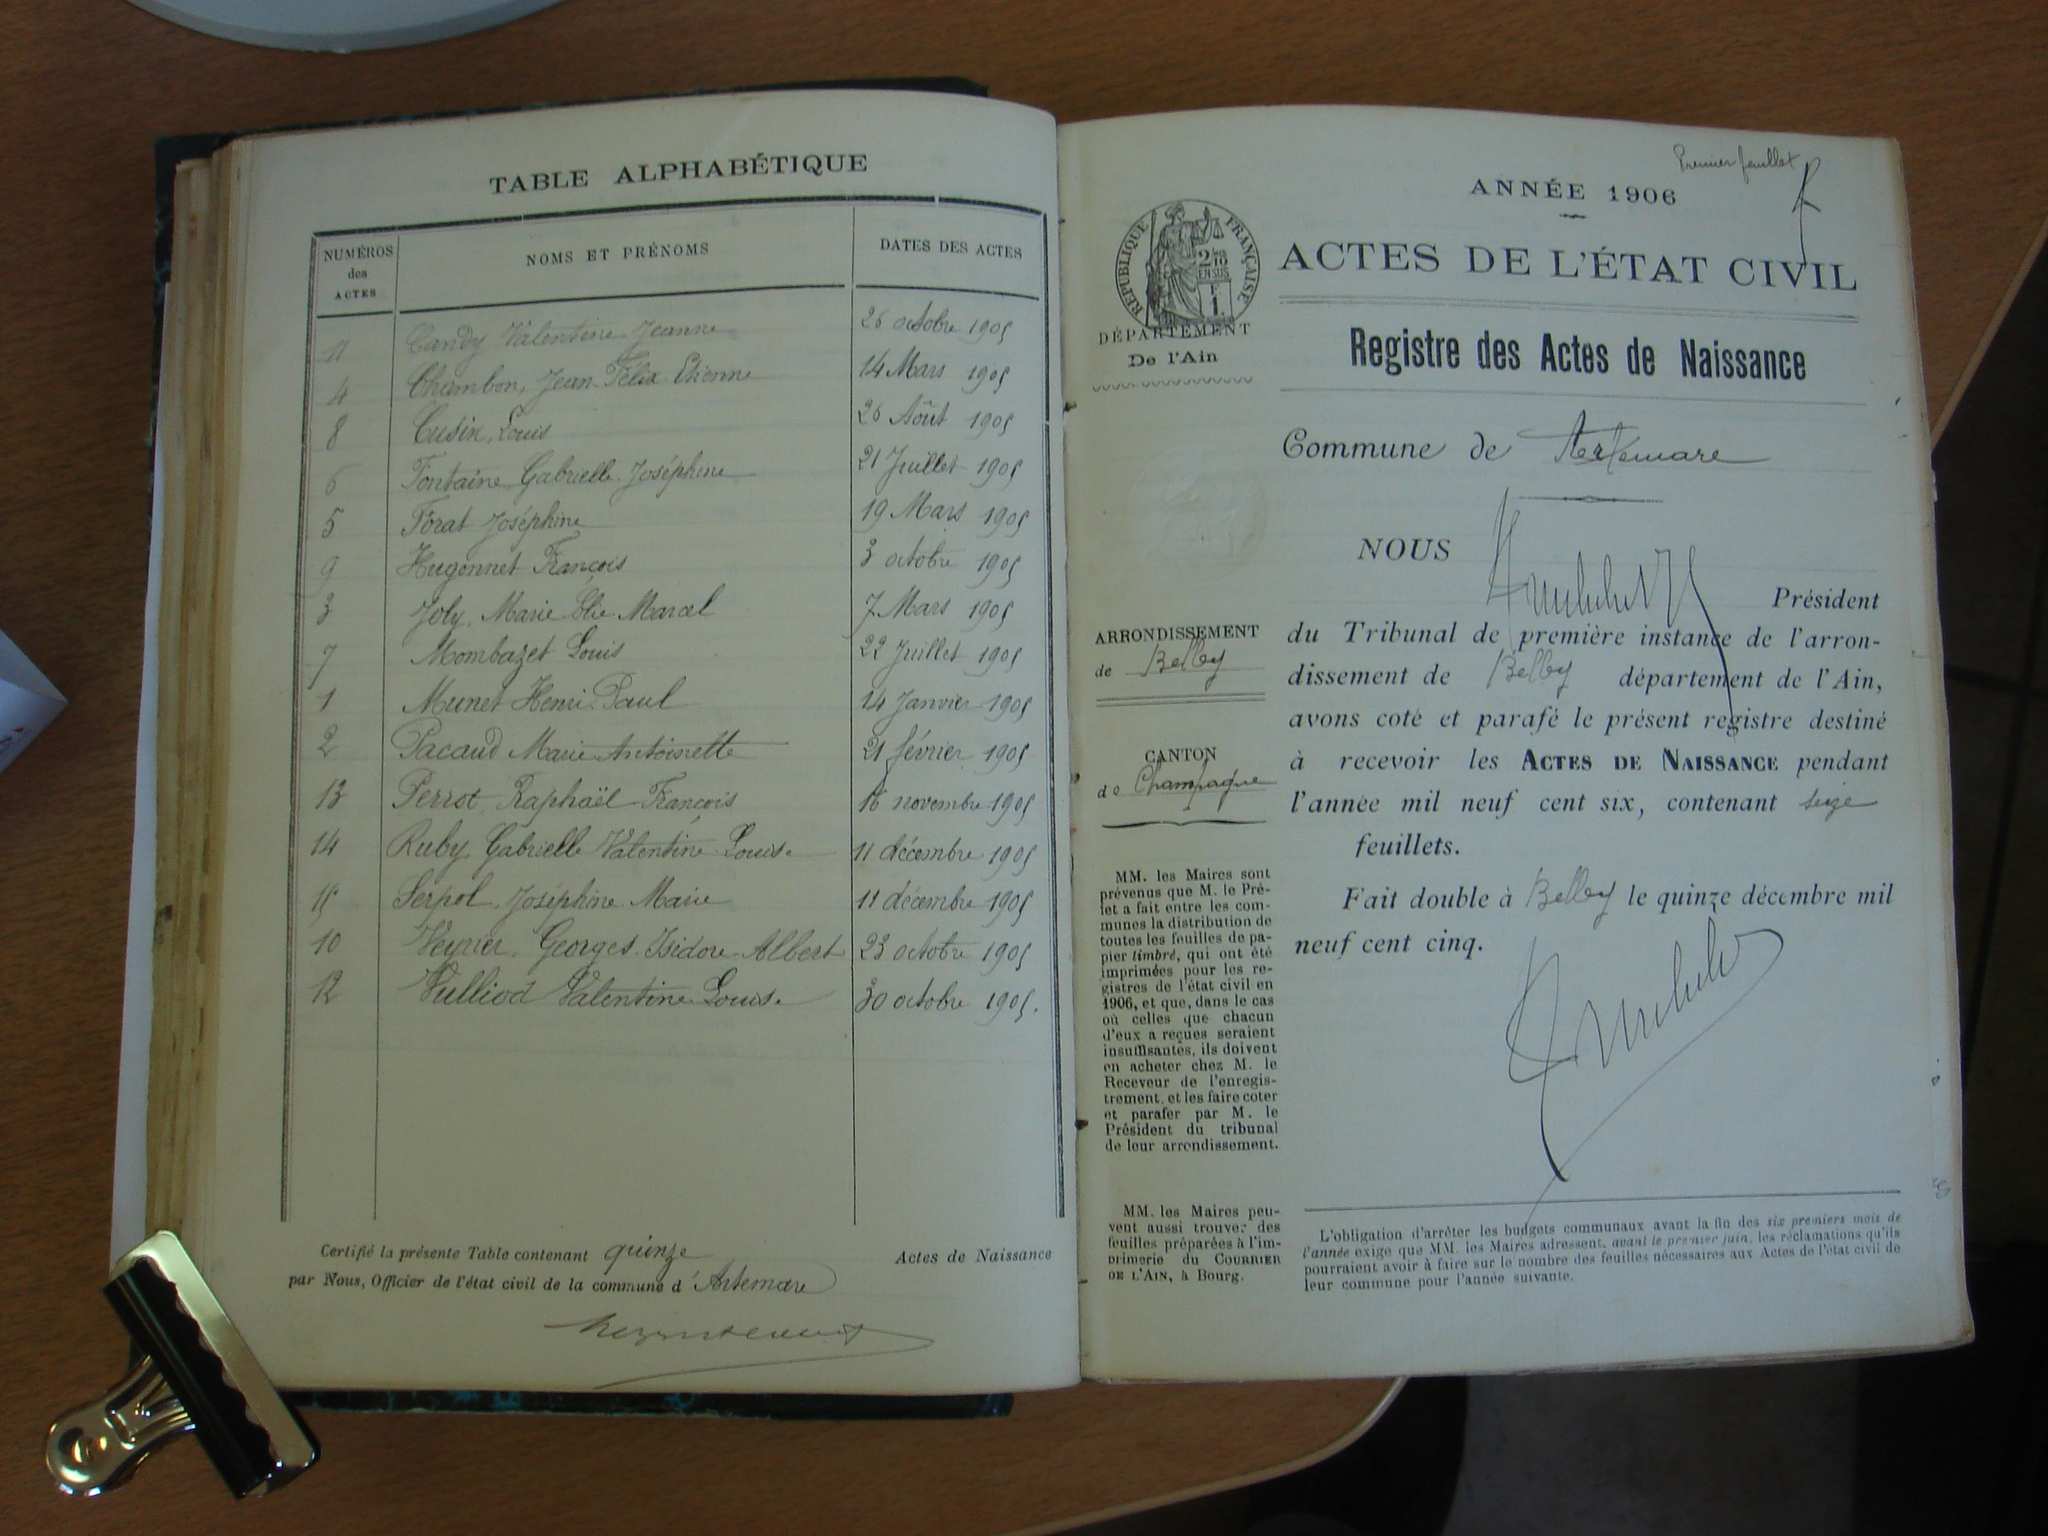 TABLE ALPHABÉTIQUE
NUMÉROS des ACTES NOMS ET PRÉNOMS DATES DES ACTES
11 Candy Valentine Jeanne 26 octobre 1905
4 Chambon, Jean Félix Etienne 14 Mars 1905
8 Cusin, Louis 26 Août 1905
6 Fontaine Gabrielle Joséphine 21 Juillet 1905
5 Forat Joséphine 19 Mars 1905
9 Hugonnet François 3 octobre 1905
3 Joly, Marie Elie Marcel 7 Mars 1905
7 Mombazet Louis 22 Juillet 1905
1 Munet Henri Paul 14 Janvier 1905
2 Pacaud Marie Antoinette 21 février 1905
13 Perrot, Raphaël François 16 novembre 1905
14 Ruby Gabrielle Valentine Louise 11 décembre 1905
15 Serpol, Joséphine Marie 11 décembre 1905
10 Veyrier, Georges Isidore Albert 23 octobre 1905
12 Vulliod Valentine Louise 30 octobre 1905.
Certifié la présente Table contenant quinze Actes de Naissance
par Nous, Officier de l'état civil de la commune d'Artemare
Premier feuillet
ANNÉE 1906
ACTES DE L'ÉTAT CIVIL
RÉPUBLIQUE FRANÇAISE
2/10 EN SUS
1
DÉPARTEMENT
De l'Ain
Registre des Actes de Naissance
Commune de Artemare
NOUS
Président
du Tribunal de première instance de l'arron-
dissement de Belley département de l'Ain,
avons coté et parafé le présent registre destiné
à recevoir les ACTES DE NAISSANCE pendant
l'année mil neuf cent six, contenant seize
feuillets.
Fait double à Belley le quinze décembre mil
neuf cent cinq.
ARRONDISSEMENT
de Belley
CANTON
de Champagne
MM. les Maires sont
prévenus que M. le Pré-
fet a fait entre les com-
munes la distribution de
toutes les feuilles de pa-
pier timbré, qui ont été
imprimées pour les re-
gistres de l'état civil en
1906, et que, dans le cas
où celles que chacun
d'eux a reçues seraient
insuffisantes, ils doivent
en acheter chez M. le
Receveur de l'enregis-
trement, et les faire coter
et parafer par M. le
Président du tribunal
de leur arrondissement.
MM. les Maires peu-
vent aussi trouver des
feuilles préparées à l'im-
primerie du COURRIER
DE L'AIN, à Bourg.
L'obligation d'arrêter les budgets communaux avant la fin des six premiers mois de
l'année exige que MM. les Maires adressent, avant le premier juin, les réclamations qu'ils
pourraient avoir à faire sur le nombre des feuilles nécessaires aux Actes de l'état civil de
leur commune pour l'année suivante.